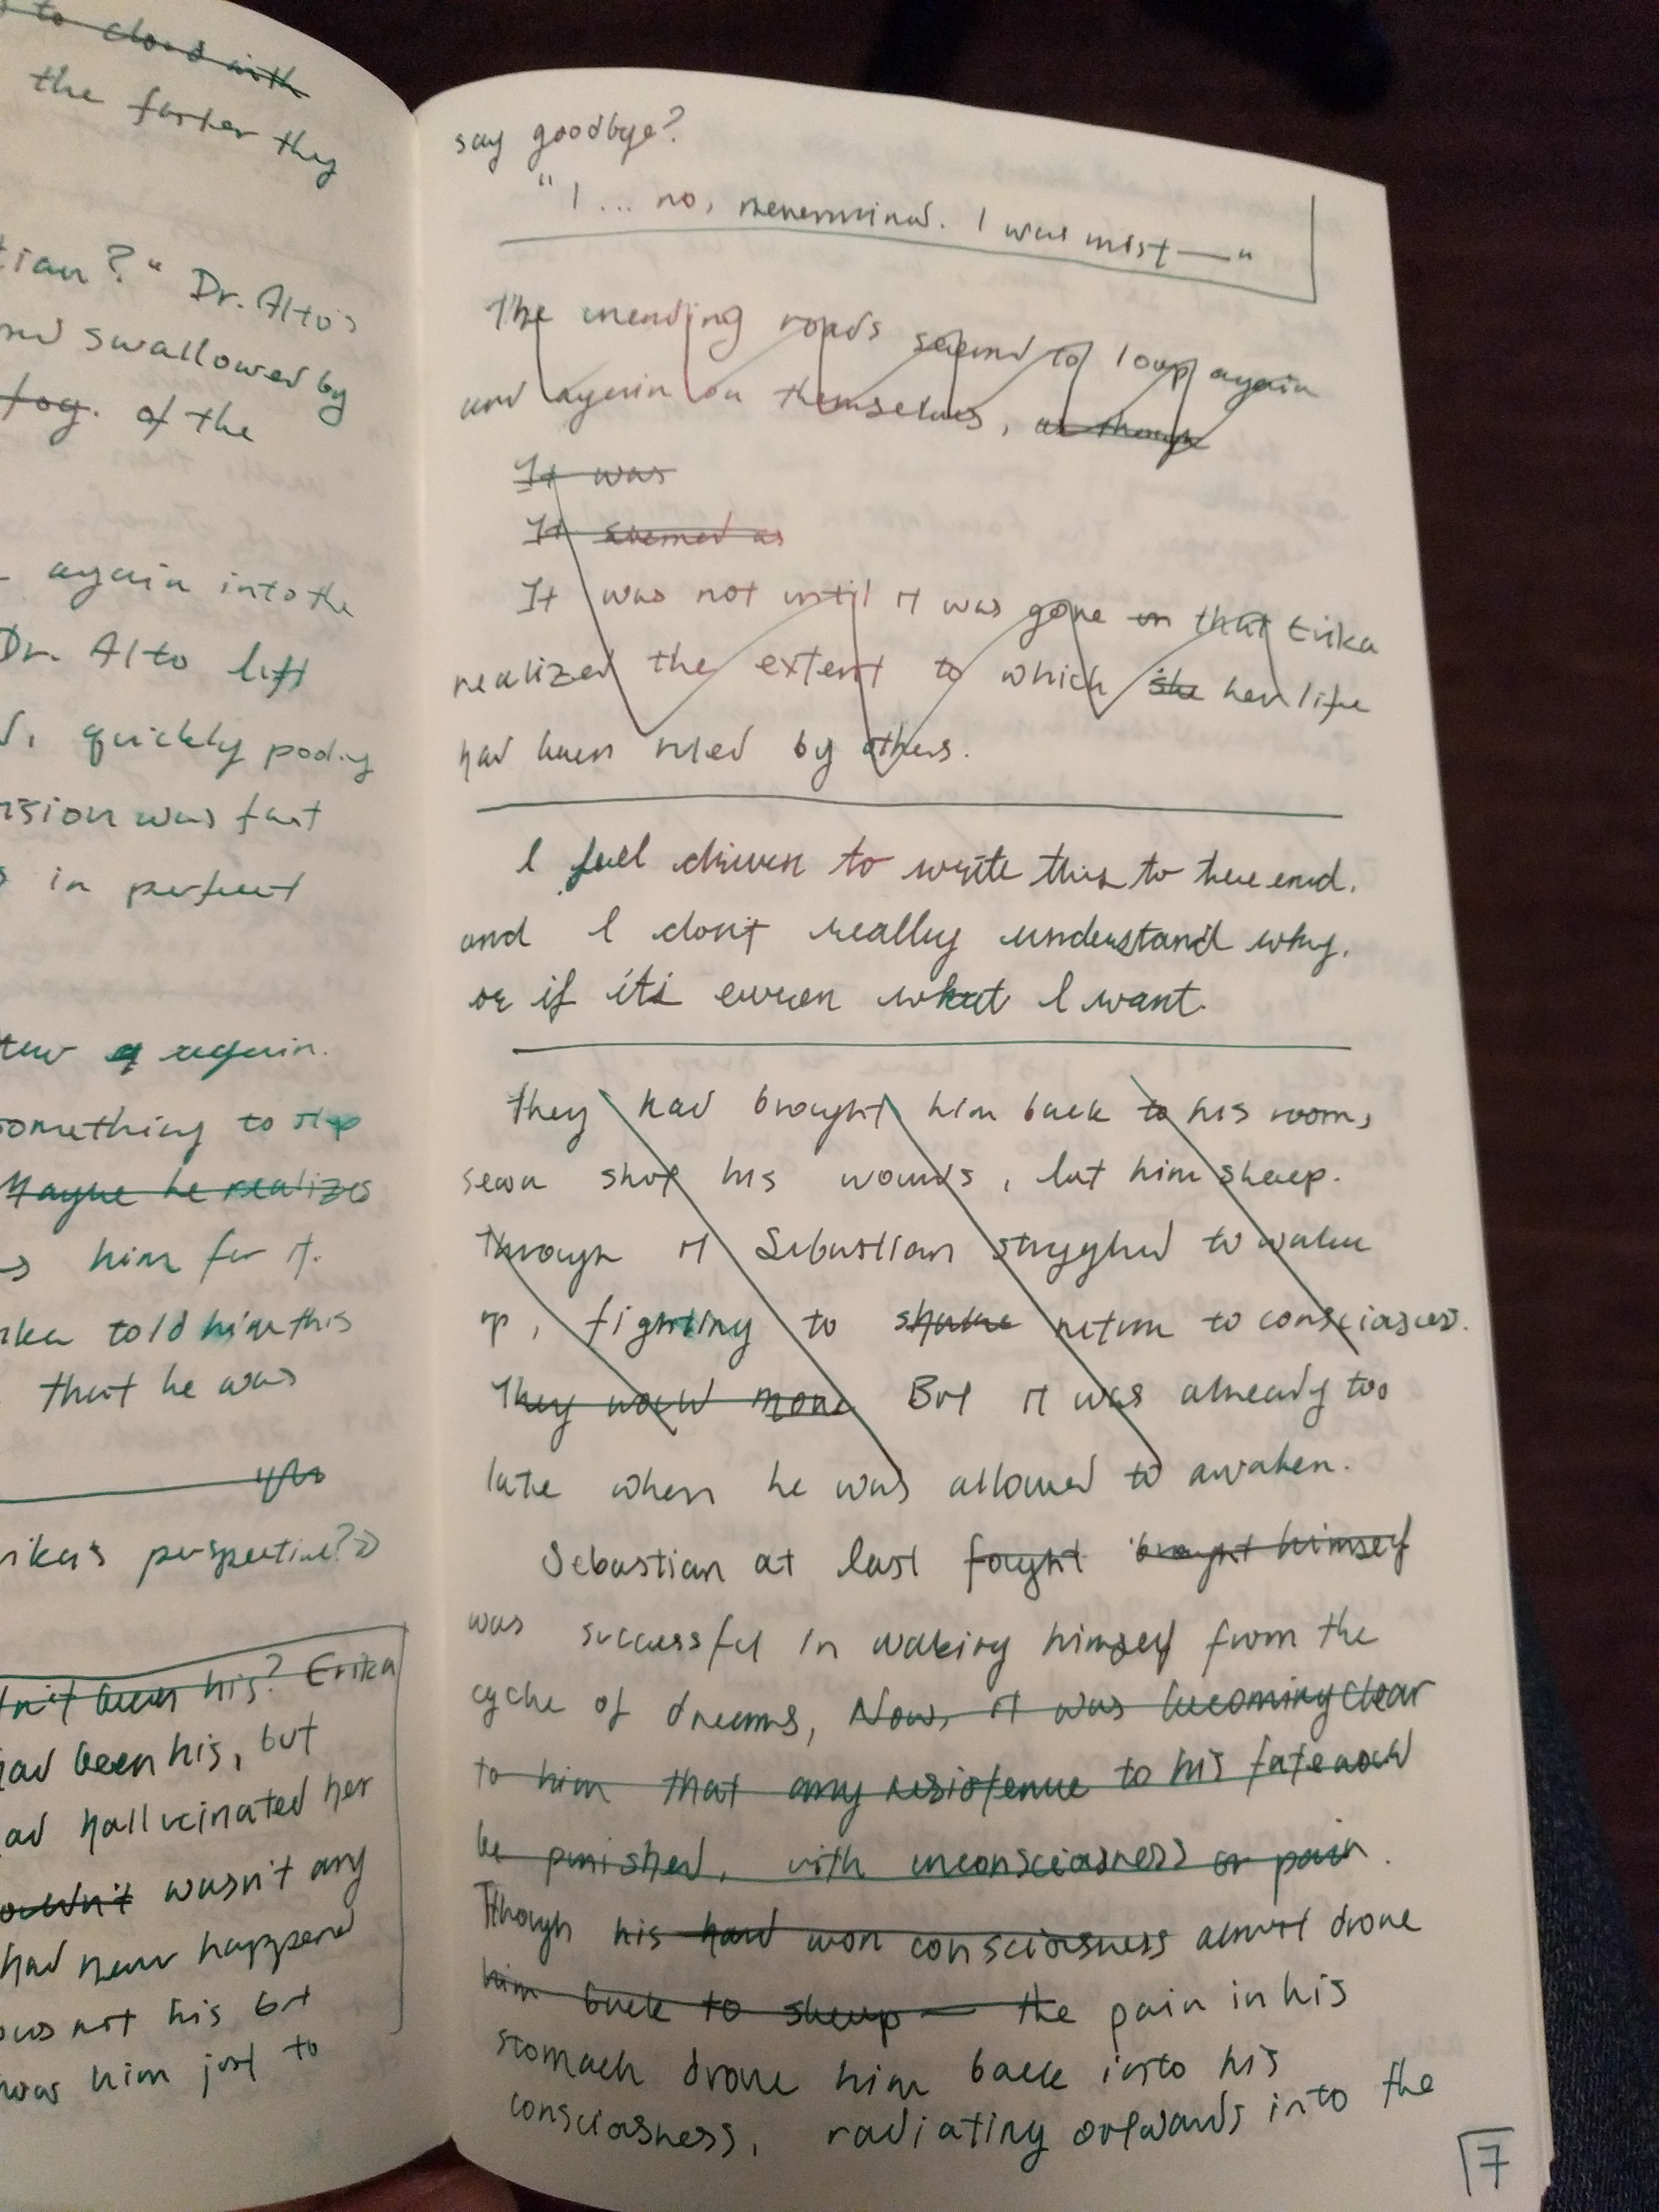 to cloud with
the faster they
tian?" Dr. Alto's
swallowed by
fog. of the
again into the
Dr. Alto lift
quickly
ision was fast
in perfect
again.
something to stop
Maybe he realizes
him for it.
ika told him this
that he was
rika's perspective?
n't been his? Erika
had been his, but
ad hallucinated her
ouldn't wasn't any
had never happened
was not his but
was him just to
say goodbye?
"I... no, nevermind. I was mist—"
The unending roads seemed to loop again
and again on themselves, as though
It was
It seemed as
It was not until it was gone on that Erika
realized the extent to which she her life
had been ruled by others.
I feel driven to write this to thee end.
and I don't really understand why.
or if it's even what I want.
They had brought him back to his room,
sewn shut his wounds, let him sleep.
Through it Sebastian struggled to wake
up, fighting to shake return to consciasness.
They would more But it was already too
late when he was allowed to awaken.
Sebastian at last fought brought himself
was successful in waking himself from the
cycle of dreams, Now, it was becoming clear
to him that any resistence to his fate
be punished, with unconsciasness or pain.
Though his hard won consciasness almost drove
him back to sleep — the pain in his
stomach drove him back into his
consciasness, radiating outwards into the
7